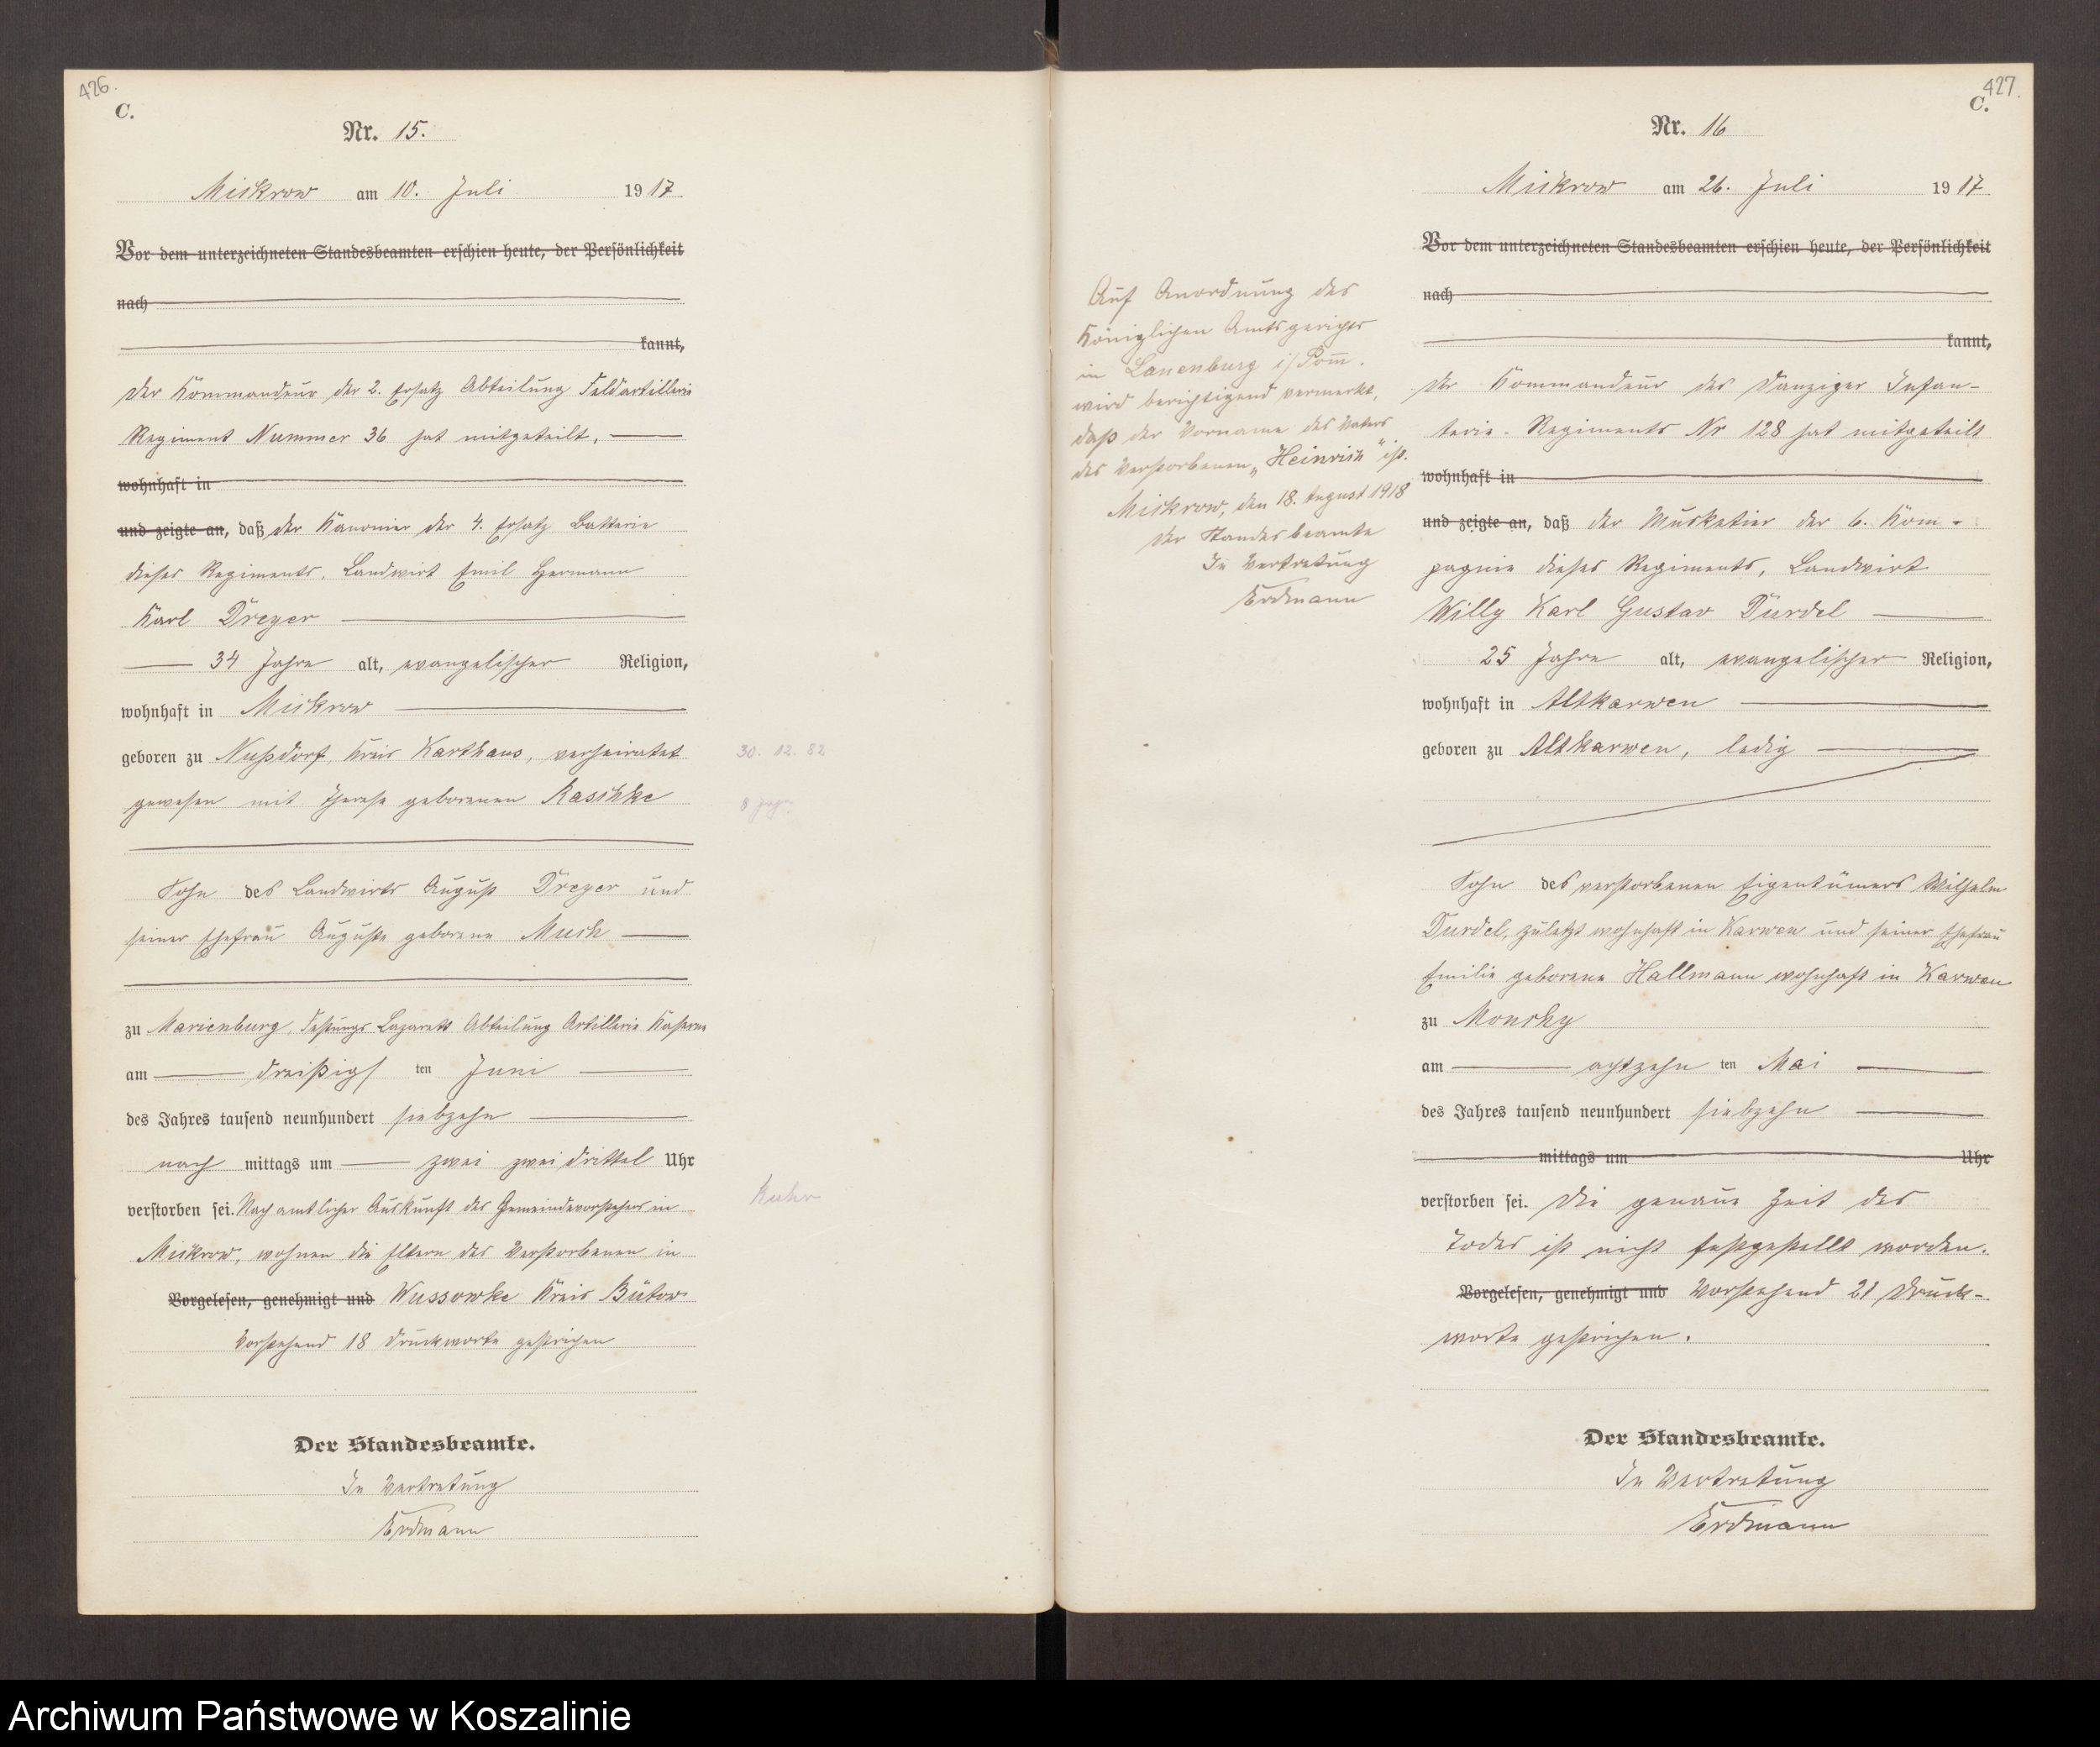 426.
C.
Nr. 15.
Mickrow am 10. Juli 1917
Vor dem unterzeichneten Standesbeamten erschien heute, der Persönlichkeit
nach
kannt,
Der Kommandeur der 2. Ersatz Abteilung Feldartillerie
Regiment Nummer 36 hat mitgeteilt,
wohnhaft in
und zeigte an, daß der Kanonier der 4. Ersatz Batterie
dieses Regiments, Landwirt Emil Hermann
Karl Dreyer
34 Jahre alt, evangelischer Religion,
wohnhaft in Mickrow
geboren zu Nußdorf, Kreis Karthaus, verheiratet
30. 12. 82
gewesen mit Therese geborenen Raschke
Sohn des Landwirts August Dreyer und
seiner Ehefrau Auguste geborene Much
zu Marienburg, Festungs Lazarett Abteilung Artillerie Kaserne
am dreißigs ten Juni
des Jahres tausend neunhundert siebzehn
nach mittags um zwei zweidrittel Uhr
verstorben sei. Nach amtlicher Auskunft des Gemeindevorstehers in
Ruhr
Mickrow, wohnen die Eltern des Verstorbenen in
Vorgelesen, genehmigt und Wussowke Kreis Bütow
Vorstehend 18 Druckworte gestrichen
Der Standesbeamte.
In Vertretung
Erdmann
427.
C.
Nr. 16
Mickrow am 26. Juli 1917
Vor dem unterzeichneten Standesbeamten erschien heute, der Persönlichkeit
nach
kannt,
Der Kommandeur des Danziger Infan-
terie-Regiments Nr 128 hat mitgeteilt
wohnhaft in
und zeigte an, daß der Musketier der 6. Kom-
pagnie dieses Regiments, Landwirt
Willy Karl Gustav Durdel
25 Jahre alt, evangelischer Religion,
wohnhaft in Altkarwen
geboren zu Altkarwen, ledig
Sohn des verstorbenen Eigentümers Wilhelm
Durdel, zuletzt wohnhaft in Karwen und seiner Ehefrau
Emilie geborene Hallmann wohnhaft in Karwen
zu Monchy
am achtzehn ten Mai
des Jahres tausend neunhundert siebzehn
mittags um Uhr
verstorben sei. Die genaue Zeit des
Todes ist nicht festgestellt worden.
Vorgelesen, genehmigt und Vorstehend 21 Druck-
worte gestrichen.
Der Standesbeamte.
In Vertretung
Erdmann
Auf Anordnung des
Königlichen Amtsgerichts
in Lauenburg i/Pomm.
wird berichtigend vermerkt,
daß der Vorname des Vaters
des Verstorbenen „Heinrich" ist.
Mickrow, den 18. August 1918
Der Standesbeamte
In Vertretung
Erdmann
Archiwum Państwowe w Koszalinie